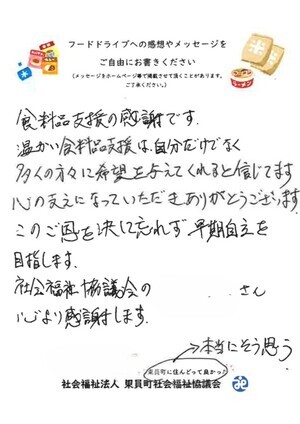 フードドライブへの感想やメッセージを
ご自由にお書きください
(メッセージをホームページ等で掲載させて頂くことがあります。
ご了承ください。)
食料品支援の感謝です。
温かい食料品支援は、自分だけでなく
多くの方々に希望を与えてくれると信じてます
心の支えになっていただきありがとうございます
このご恩を決して忘れず早期自立を
目指します。
社会福祉協議会の さん
心より感謝します。
→本当にそう思う
東員町に住んどって良かった
社会福祉法人 東員町社会福祉協議会